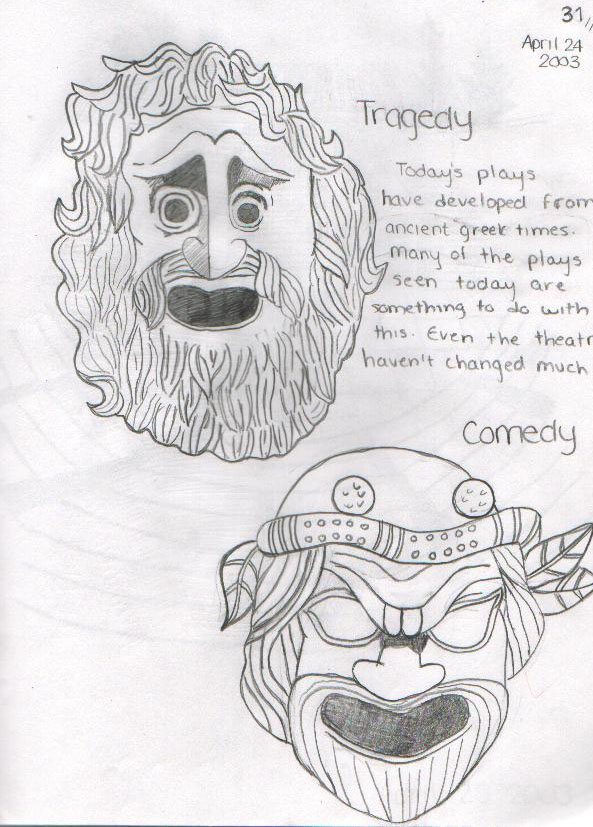 31
April 24
2003
Tragedy
Today's plays
have developed from
ancient greek times.
Many of the plays
seen today are
something to do with
this. Even the theatr
haven't changed much
Comedy